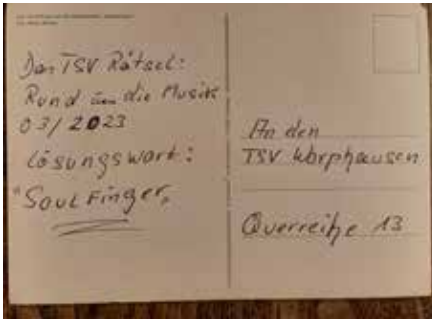 Das TSV Rätsel:
Rund um die Musik
03/2023
Lösungswort:
"Soul Finger"
An den
TSV Worphausen
Querreihe 13